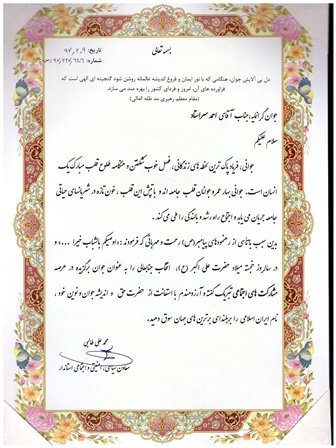 بسمه تعالی
تاریخ: ۹۷/۲/۹
دل بی آلایش جوان، هنگامی که با نور ایمان و فروغ اندیشه عالمانه روشن شود گنجینه ای الهی است که
فرآورده های آن، امروز و فردای کشور را بهره مند می سازد.
(مقام معظم رهبری مد ظله العالی)
جوان گرانمایه، جناب آقای احمد سرافراز
سلام علیکم
جوانی، فریاد پاک ترین لحظه های زندگانی، فصل خوب شکفتن و هنگامه طلوع قلب مبارک یک
انسان است. جوانی بهار عمر و جوانان قلب جامعه اند و با تپش این قلب، خون تازه در شریانهای حیاتی
جامعه جریان می یابد و اجتماع راه رشد و بالندگی را طی می کند.
بدین سبب با تاسی از رهنمودهای پیامبر(ص) رحمت و مهربانی که فرمودند: «اوصیکم بالشباب خیرا ...» و
در سالروز خجسته میلاد حضرت علی اکبر (ع)، انتخاب جنابعالی را به عنوان جوان برگزیده در عرصه
مشارکت های اجتماعی تبریک گفته و آرزومندم با استعانت از حضرت حق و اندیشه جوان و نوین خود،
نام ایران اسلامی را بر بلندای برترین های جهان سوق دهید.
محمد علی طالبی
معاون سیاسی، امنیتی و اجتماعی استاندار